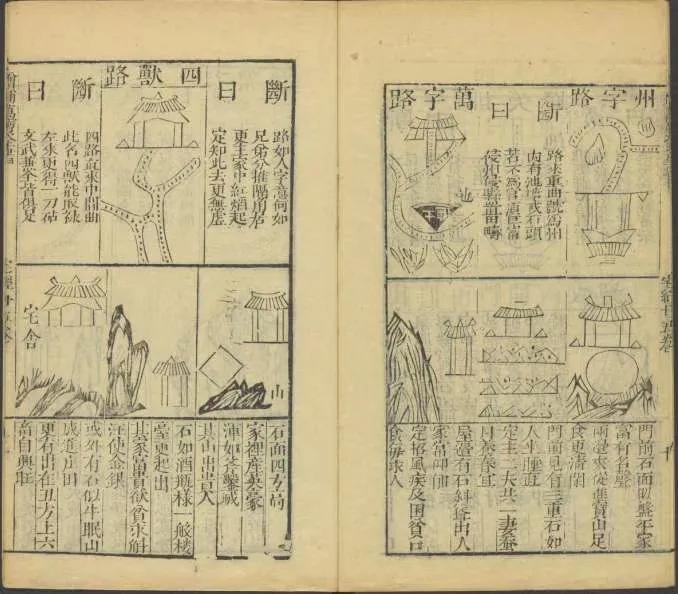 州字路
路來重曲號為州
內有池塘或石頭
若不為官須巨富
侵縣置田疇
斷曰
萬字路
山
門前石面似盤平家
富有名聲
兩邊夾從進寶山足
食更清閑
門前見有三重石如
人坐睡直
定主二夫共一妻蠶
月養春宜
屋邊有石斜聳出人
家常仰前
定招風疾及困貧口
食每求人
斷曰
路如人字意何如
兄弟分推隔用居
更主家中紅熖起
定知此去更無虛
四獸路
斷曰
四路直來中間曲
此名四獸能取祿
左來更得一刀砧
文武兼全皆俱足
山
宅舍
石面四方高
家裡產英豪
渾如斧鑿成
其山出貴人
石如酒瓶樣一般樓
臺更起出
其家富貴欲貧求斛
使金銀
或外有石似牛眠山
成進庄田
更有出在丑方上六
畜自興旺